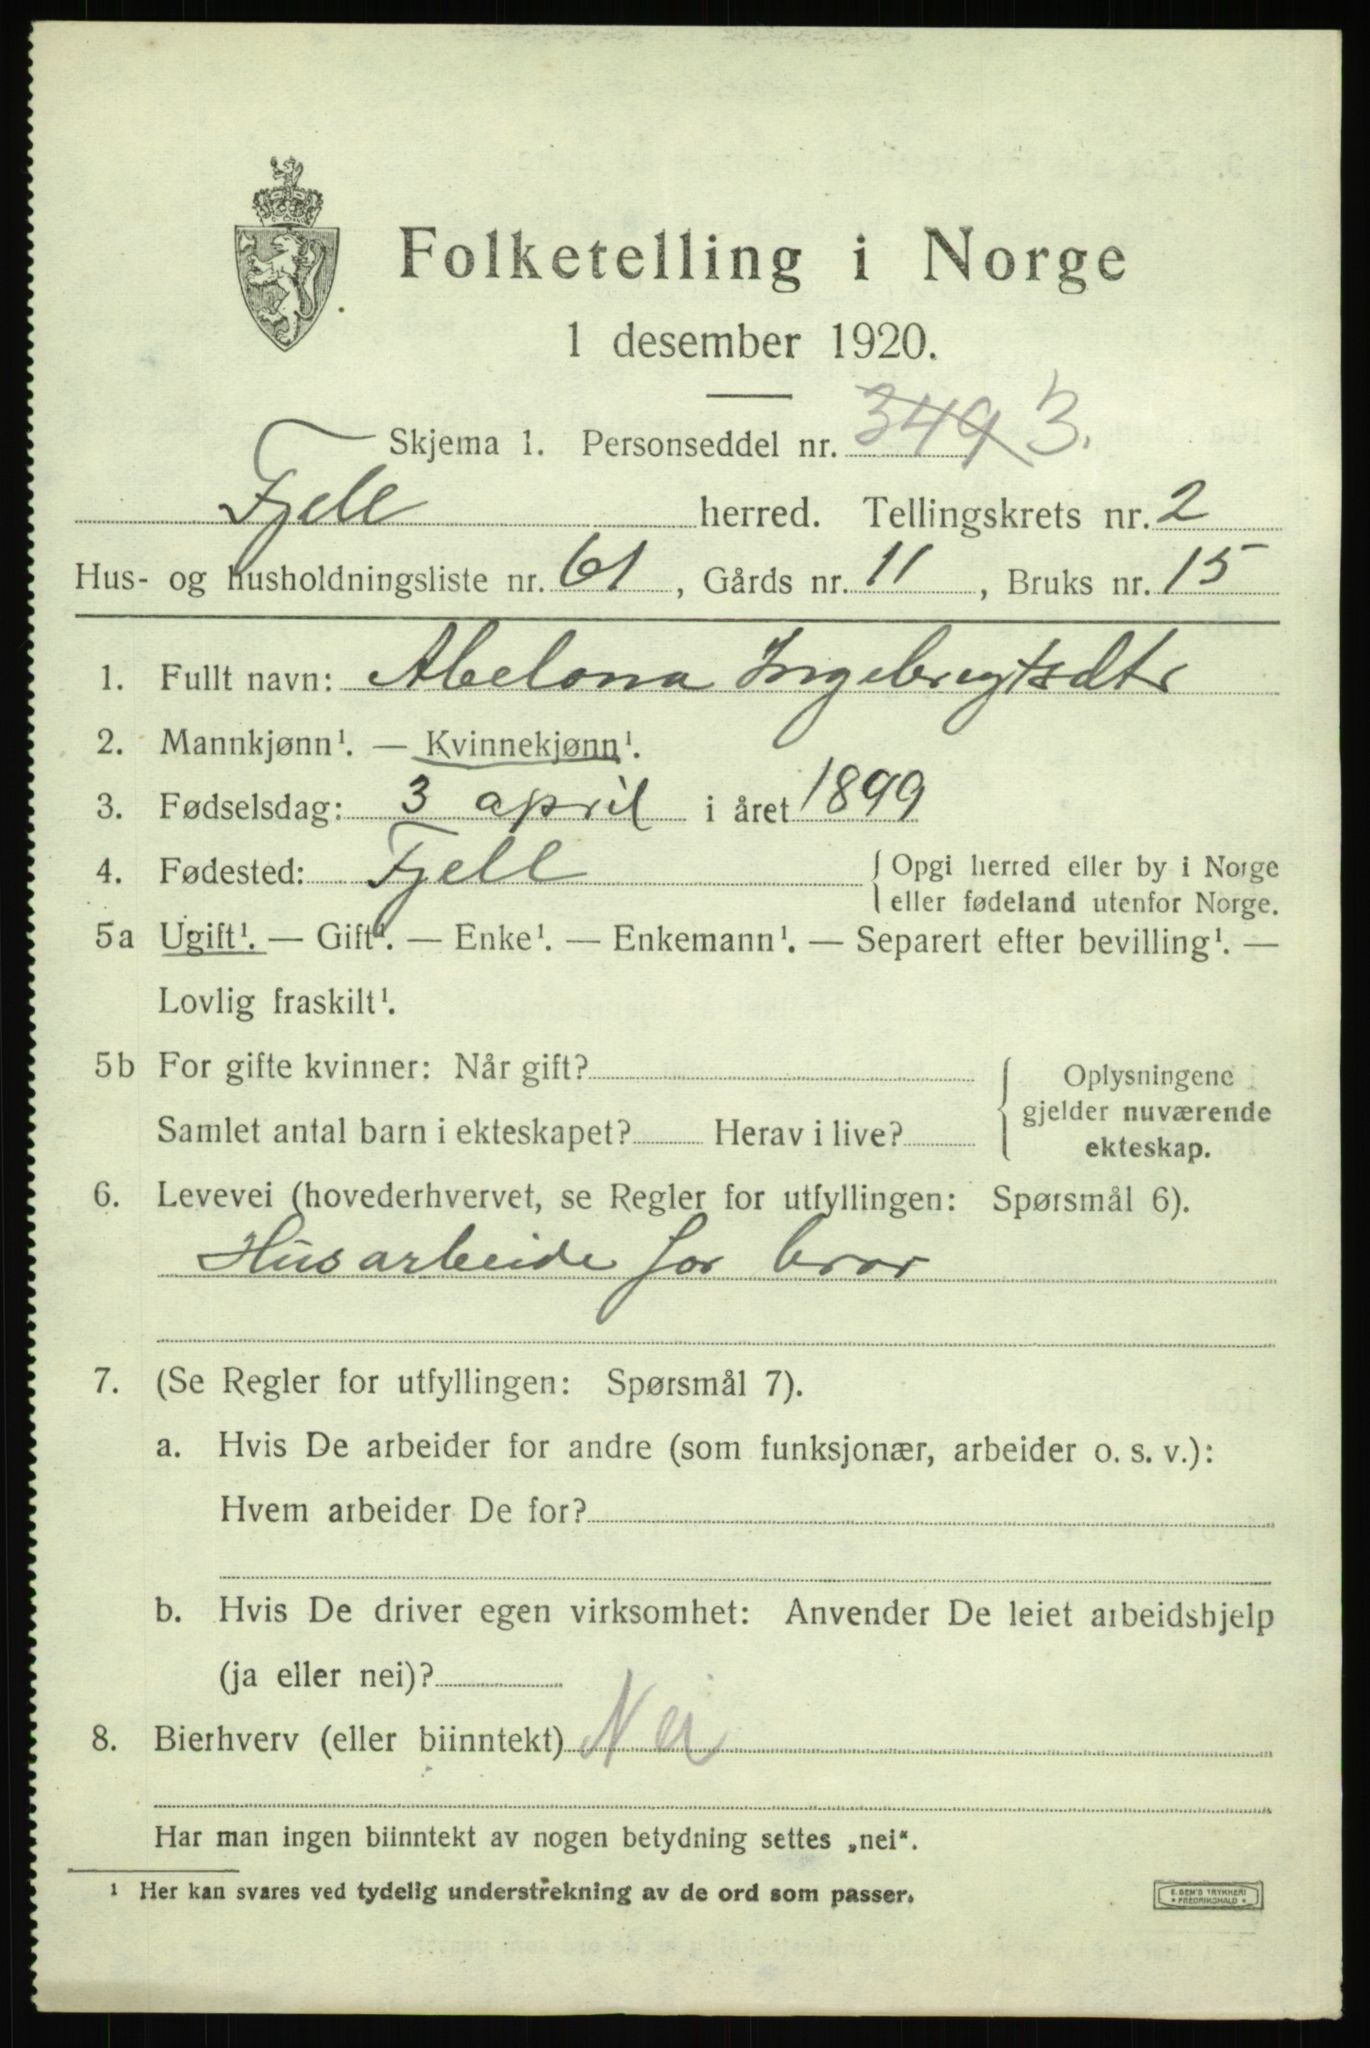 Folketelling i Norge
1 desember 1920.
Skjema 1. Personseddel nr. 349 3.
Fjell herred. Tellingskrets nr. 2
Hus- og husholdningsliste nr. 61, Gårds nr. 11, Bruks nr. 15
1. Fullt navn: Abelona Ingebregtsdtr
2. Mannkjønn¹. — Kvinnekjønn¹.
3. Fødselsdag: 3 april i året 1899
4. Fødested: Fjell { Opgi herred eller by i Norge
eller fødeland utenfor Norge.
5a Ugift¹. — Gift¹. — Enke¹. — Enkemann¹. — Separert efter bevilling¹. —
Lovlig fraskilt¹.
5b For gifte kvinner: Når gift?
Samlet antal barn i ekteskapet? Herav i live?
{ Oplysningene
gjelder nuværende
ekteskap.
6. Levevei (hovederhvervet, se Regler for utfyllingen: Spørsmål 6).
Husarbeide for bror
7. (Se Regler for utfyllingen: Spørsmål 7).
a. Hvis De arbeider for andre (som funksjonær, arbeider o. s. v.):
Hvem arbeider De for?
b. Hvis De driver egen virksomhet: Anvender De leiet arbeidshjelp
(ja eller nei)?
8. Bierhverv (eller biinntekt) Nei
Har man ingen biinntekt av nogen betydning settes „nei“.
¹ Her kan svares ved tydelig understrekning av de ord som passer.
E. SEM'S TRYKKERI
* FREDRIKSHALD *